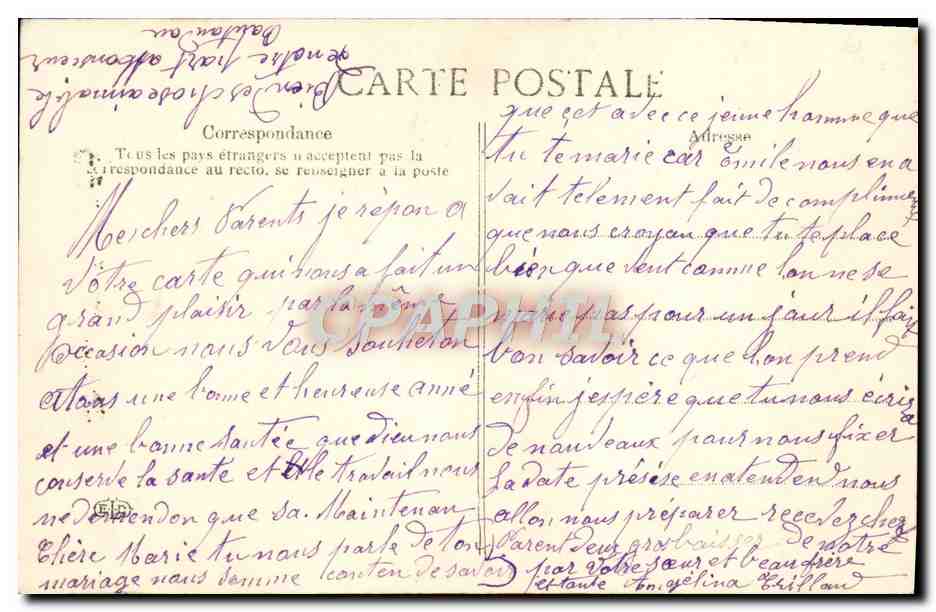 Bien des chose aimable
de notre part a Monsieur
CARTE POSTALE
Correspondance
Tous les pays étrangers n'acceptent pas la
correspondance au recto, se renseigner à la poste
Mes chers Parents je répon a
votre carte qui nous a fait un
grand plaisir par la même
occasion nous vous souheton
a tous une bonne et heureuse anné
et une bonne santée que dieu nous
conserve la santé et le travail nous
ne demendon que sa. Maintenan
Chère Marie tu nous parle de ton
mariage nous somme conten de savoir
Adresse
que cet avec ce jeune homme que
tu te marie car Émile nous en a
vait telement fait de complimen
que nous croyon que tu te place
bien que vent comme lon ne se
marie pas pour un jour il fau
bon savoir ce que lon prend
enfin j'espère que tu nous écrira
de nouveaux pour nous fixer
la date présise en atendend nous
allon nous préparer recevez cher
Parent deux gros baisser de notre
par votre sœur et beau frère
et tante Angélina Trilland
CPAPHIL
ELD